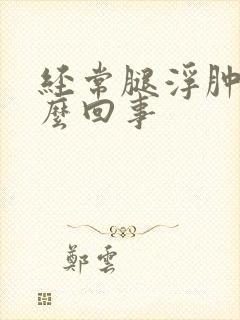 经常腿浮肿
麽回事
鄭雲